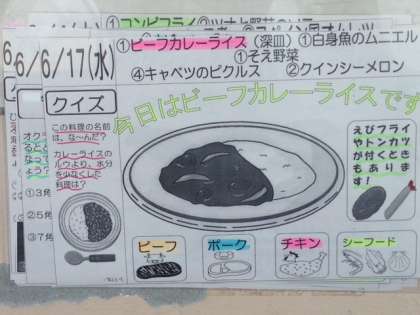 ①コンビフライ
6/6/17(水)
①ビーフカレーライス（深皿）①白身魚のムニエル
①そえ野菜
④キャベツのピクルス ②クインシーメロン
クイズ
この料理の名前は、な〜んだ？
カレーライスのルウより、水分を少なくした料理は？
今日はビーフカレーライスです
えびフライやトンカツが付くときもあります！
①3角
②5角
③7角
ビーフ
ポーク
チキン
シーフード